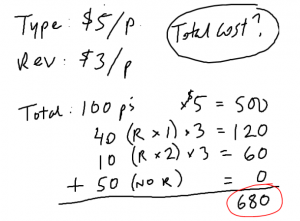 Type: $5/p
Total cost?
Rev: $3/p
Total: 100 p's x$5 = 500
40 (R x 1) x 3 = 120
10 (R x 2) x 3 = 60
+ 50 (NO R) = 0
680